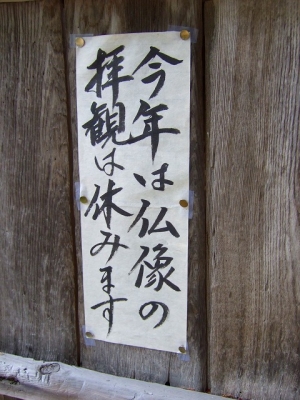 今年は仏像の
拝観は休みます